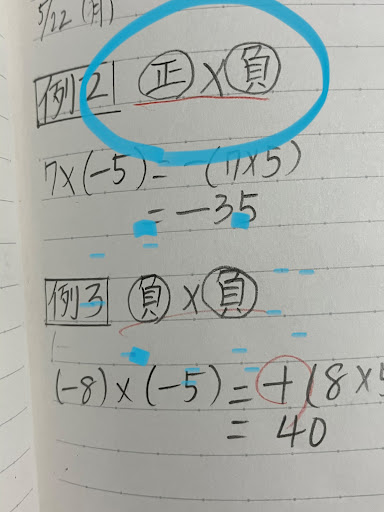 5/22 (月)
例2 正×負
7×(-5) = -(7×5)
= -35
例3 負×負
(-8)×(-5) = +(8×5
= 40